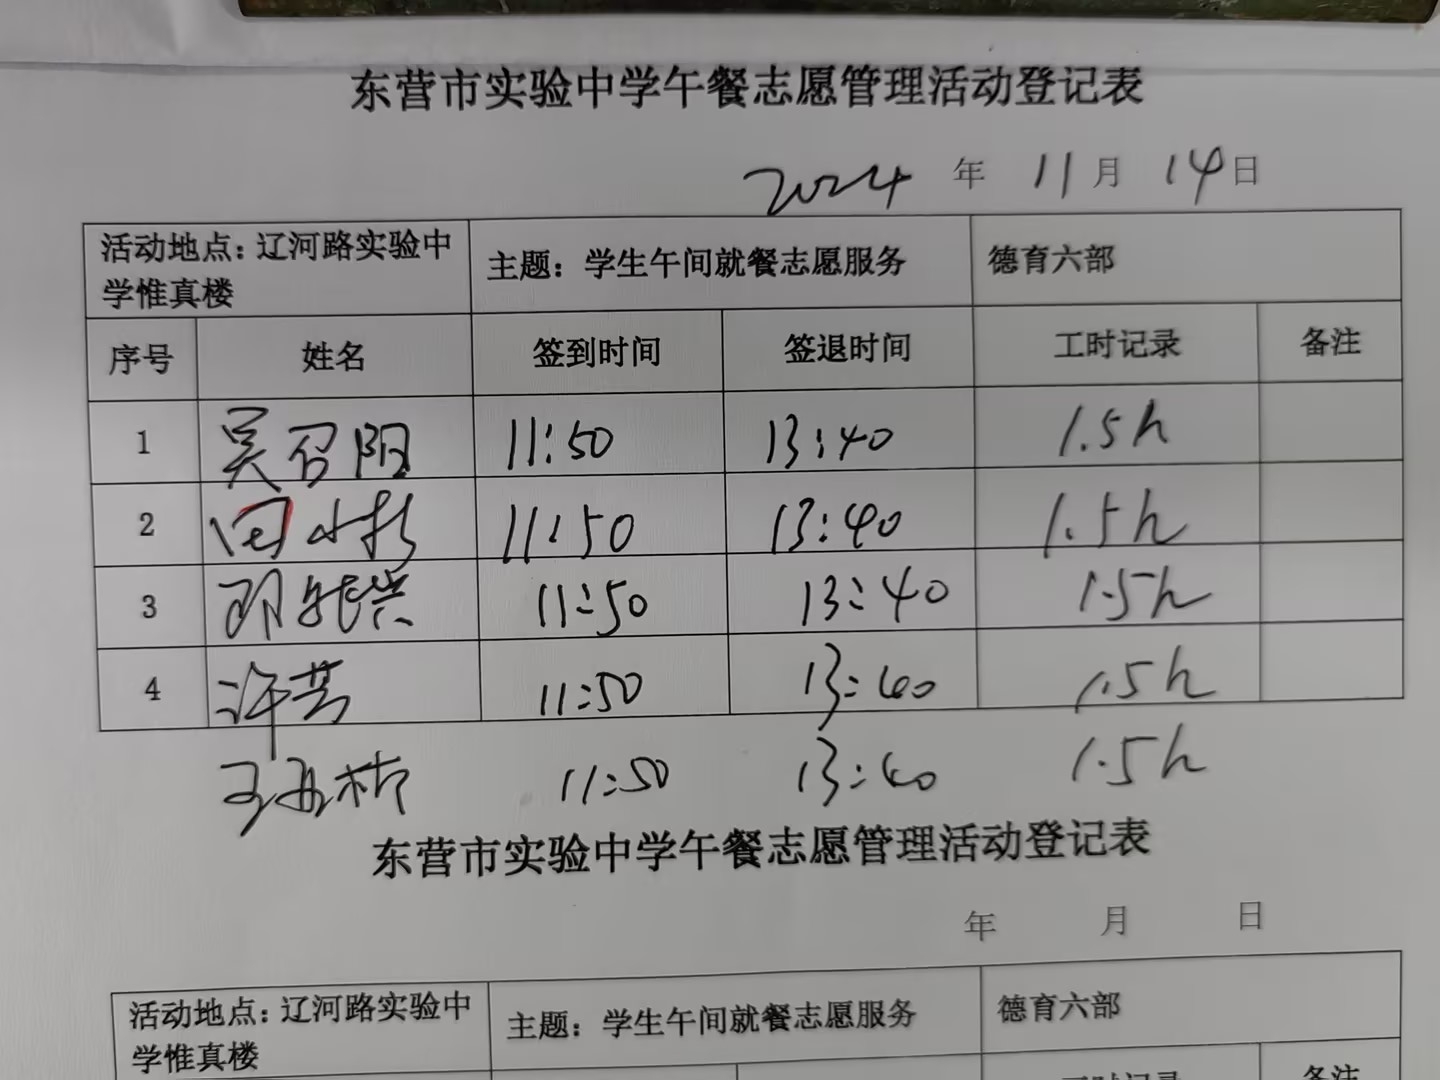 东营市实验中学午餐志愿管理活动登记表
2024 年 11月 14日
活动地点：辽河路实验中学惟真楼 主题：学生午间就餐志愿服务 德育六部
序号 姓名 签到时间 签退时间 工时记录 备注
1 吴召阳 11:50 13:40 1.5h
2 田小彬 11:50 13:40 1.5h
3 11:50 13:40 1.5h
4 许芸 11:50 13:40 1.5h
11:50 13:40 1.5h
东营市实验中学午餐志愿管理活动登记表
年 月 日
活动地点：辽河路实验中学惟真楼 主题：学生午间就餐志愿服务 德育六部
工时记录 备注